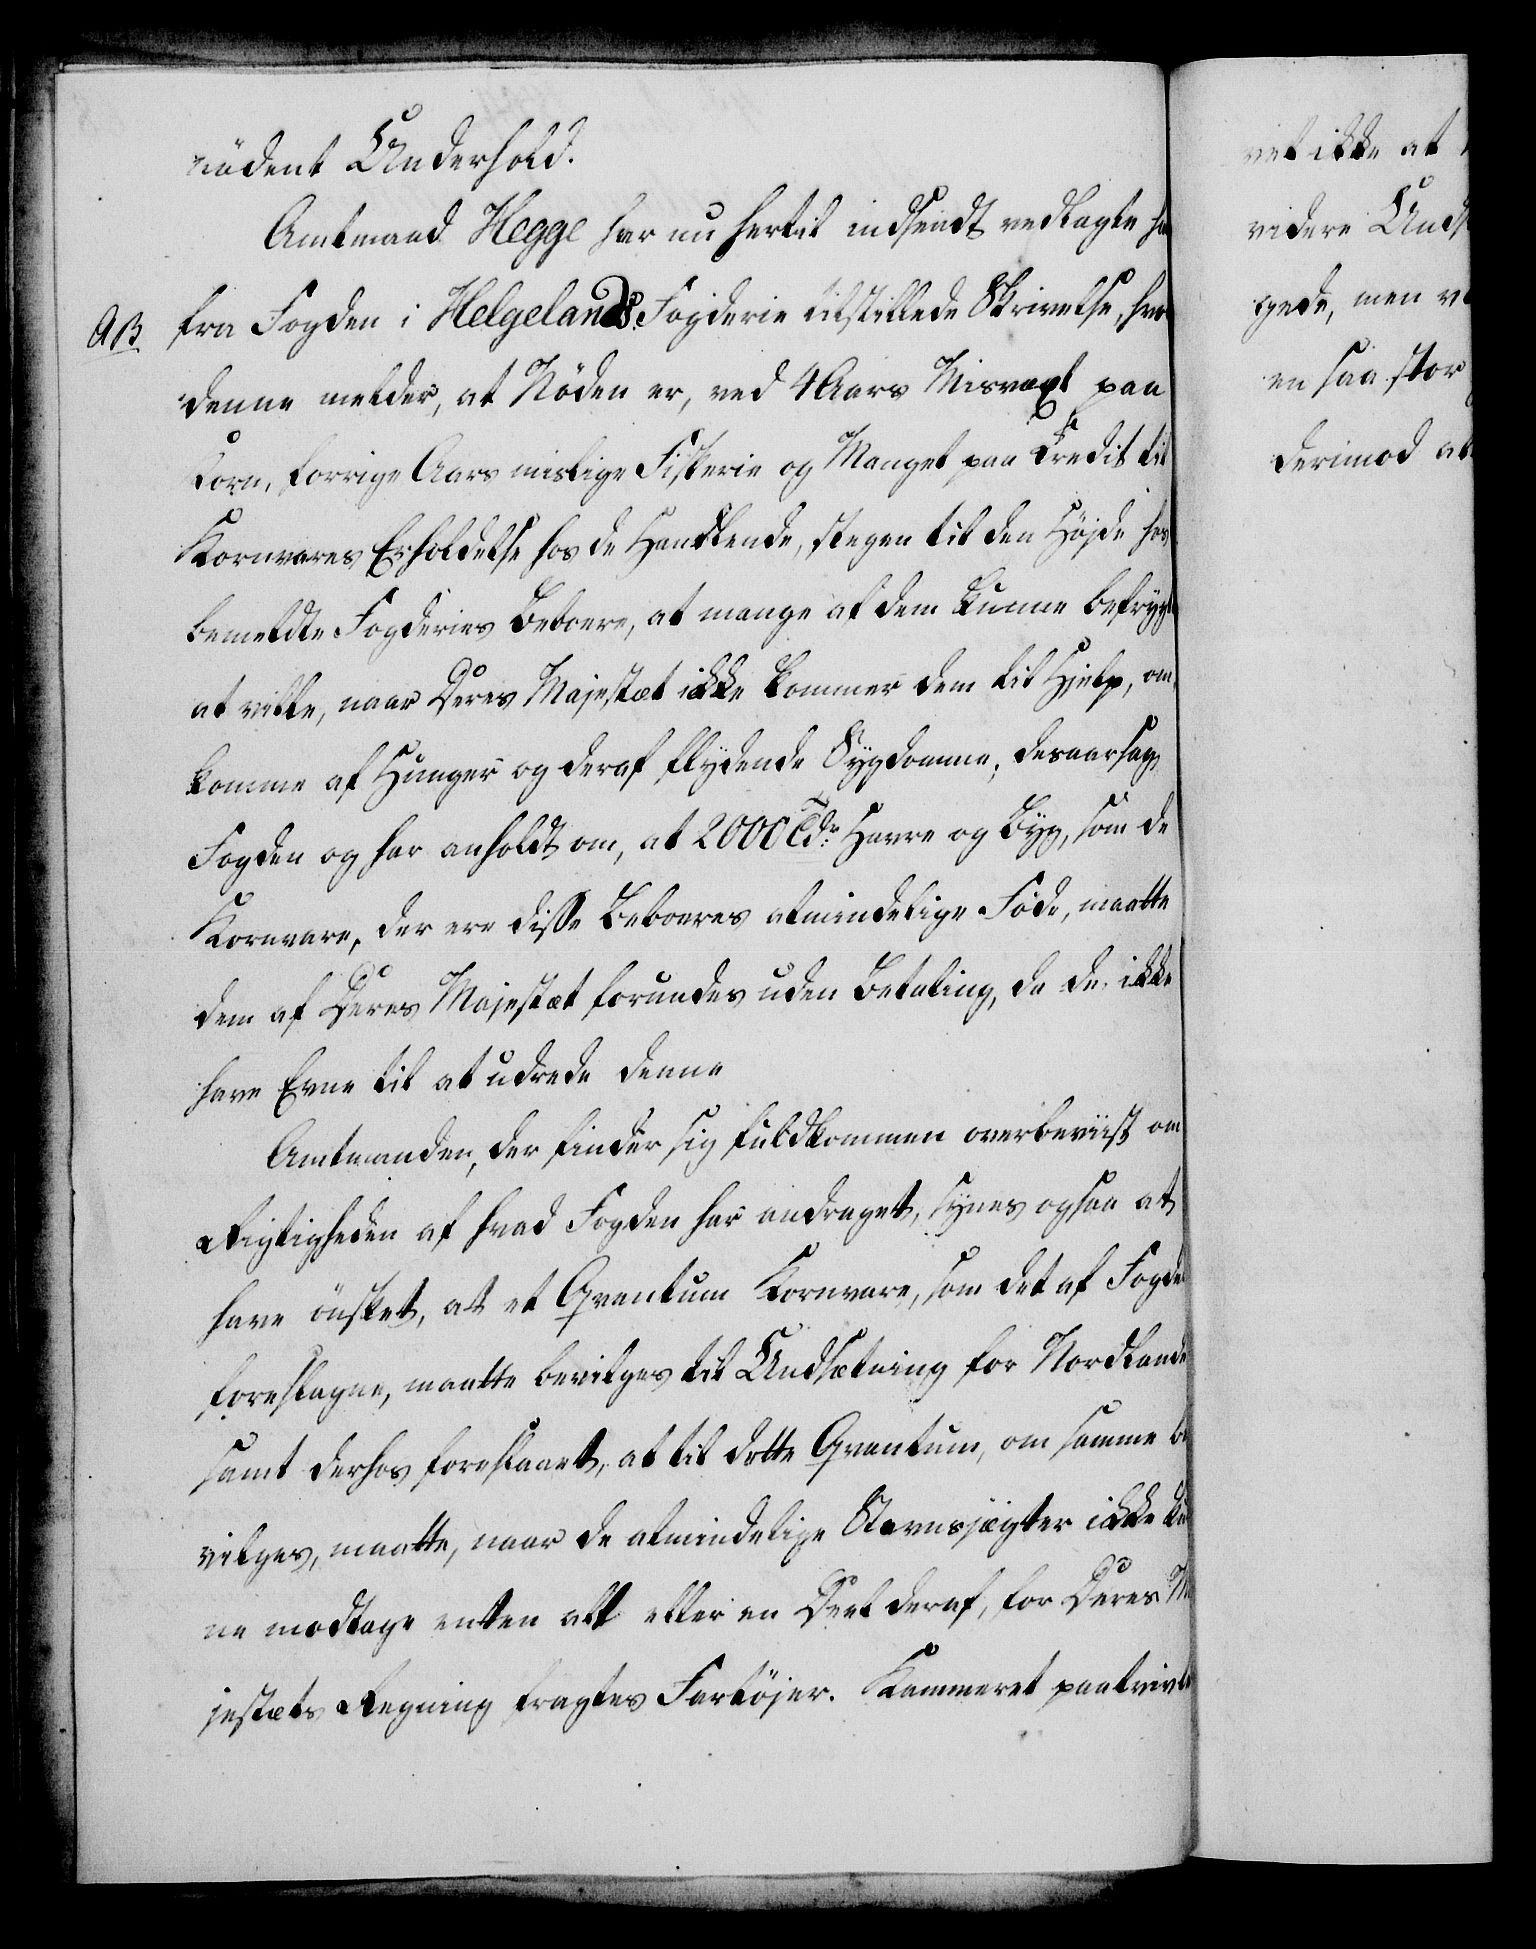 nödent Underhold.
Amtmand Hegge har nu hertil indsendt vedlagte ha
AB fra Fogden i Helgelands Fogderie tilstillede Skrivelse, hvo
denne melder, at Nöden er, ved 4 Aars Misvæxt paa
Korn, forrige Aars mislige Fiskerie og Mangel paa Credit til
Kornvares Erholdelse hos de Handlende, stegen til den Höjde hos
bemeldte Fogderies Beboere, at mange af dem kunne befrygt
at ville, naar Deres Majestæt ikke kommer dem til Hjelp, om
komme af Hunger og deraf flydende Sygdomme; desaarsag
Fogden og har anholdt om, at 2000 Tdr: Havre og Byg, som de
Kornvare, der ere disse Beboeres almindelige Föde, maatte
dem af Deres Majestæt forundes uden Betaling, da de ikke
have Evne til at udrede denne
Amtmanden, der finder sig fuldkommen overbeviist om
Rigtigheden af hvad Fogden har andraget, synes ogsaa at
have önsket, at et Qvantum Kornvare, som det af Fogde
foreslagne, maatte bevilges til Undsætning for Nordlande
samt derhos foreslaaet, at til dette Qvantum, om samme be
vilges, maatte, naar de almindelige Stevnsjægter ikke ku
ne modtage enten alt eller en Deel deraf, for Deres M
jestæts Regning fragtes Fartöjer. Kammeret paatvivle
vel ikke at
videre Unds
gede, men v
en saa stor
derimod at